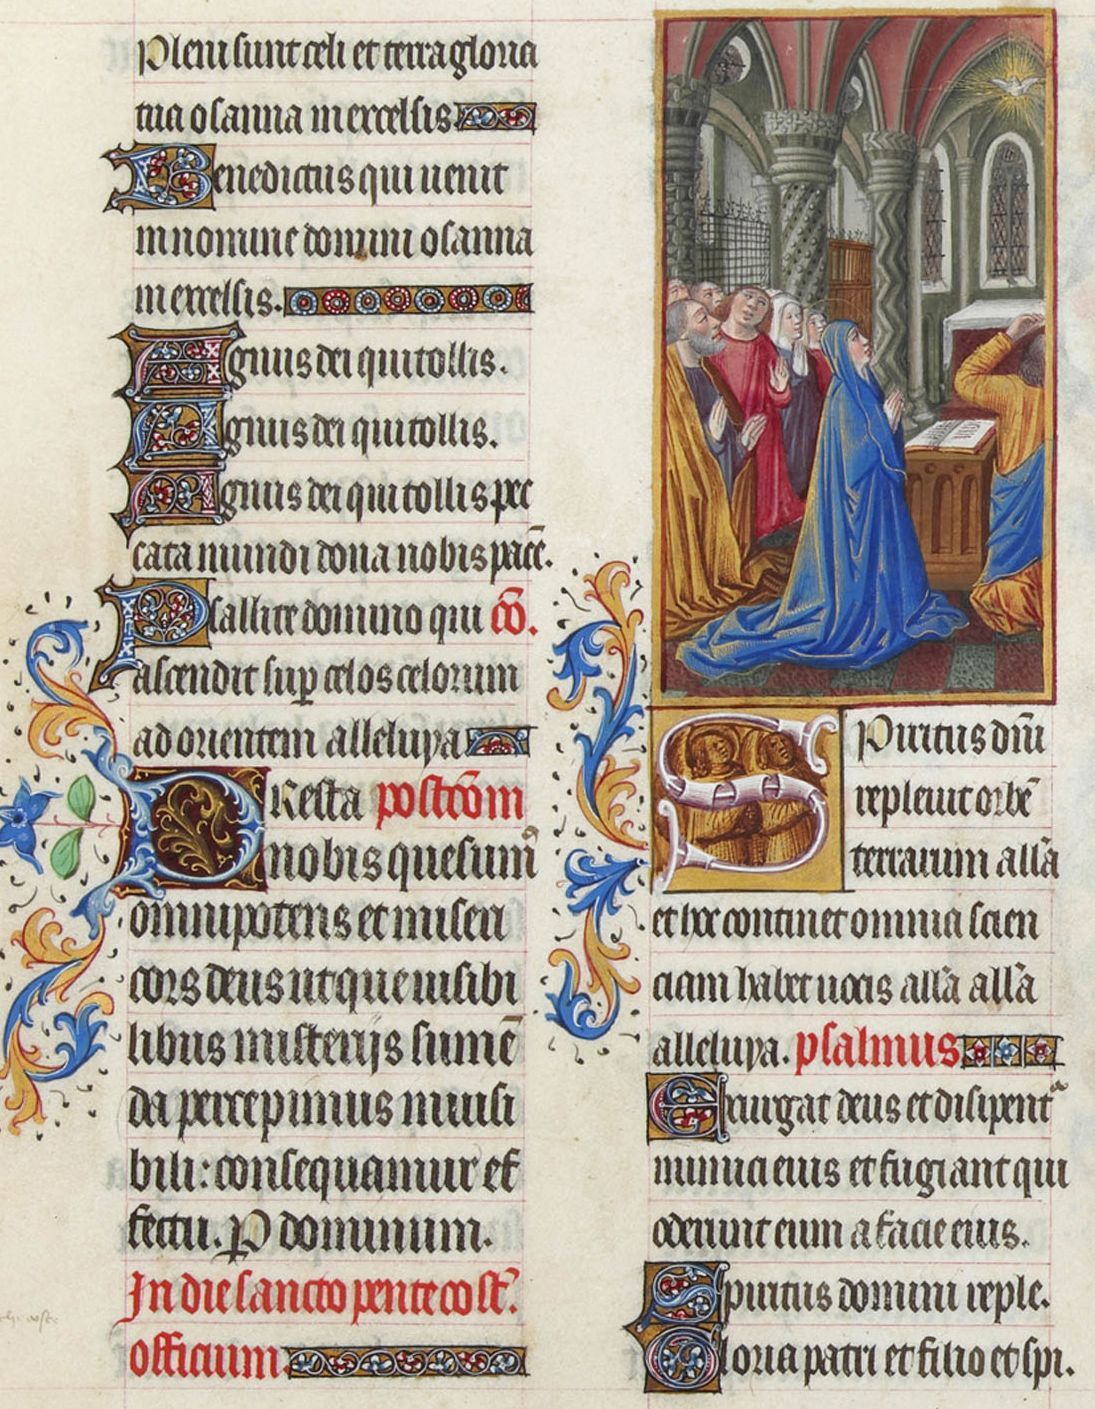 Pleni sunt celi et terra gloria
tua osanna in excelsis
Benedictus qui uenit
in nomine domini osanna
in excelsis.
Agnus dei qui tollis.
Agnus dei qui tollis.
Agnus dei qui tollis pec
cata mundi dona nobis pacē.
Psallite domino qui cō.
ascendit sup celos celorum
ad orientem alleluya
PResta postcōm
nobis quesum
omnipotens et miseri
cors deus ut que uisibi
libus misterijs sumē
da percepimus inuisi
bili: consequamur ef
fectu. P dominum.
In die sancto pentecost.
officium.
Spiritus dñi
repleuit orbē
terrarum all̃a
et hoc continet omnia scien
ciam habet uocis all̃a all̃a
alleluya. psalmus
Exurgat deus et disipent
inimici eius et fugiant qui
oderunt eum a facie eius.
Spiritus domini reple.
Gloria patri et filio et spi.